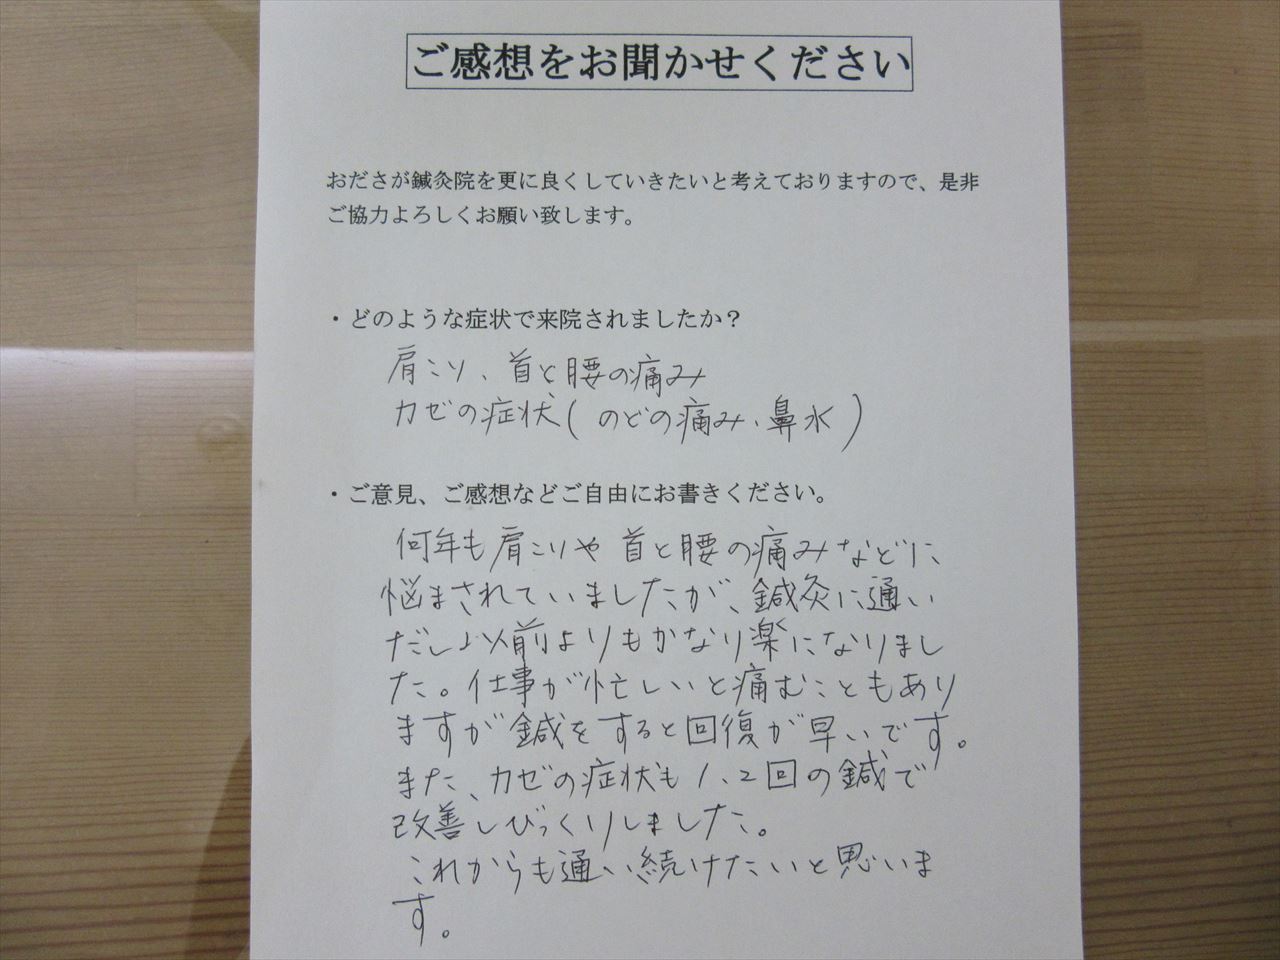 ご感想をお聞かせください
おださが鍼灸院を更に良くしていきたいと考えておりますので、是非
ご協力よろしくお願い致します。
・どのような症状で来院されましたか？
肩こり、首と腰の痛み
カゼの症状(のどの痛み、鼻水)
・ご意見、ご感想などご自由にお書きください。
何年も肩こりや首と腰の痛みなどに
悩まされていましたが、鍼灸に通い
だし以前よりもかなり楽になりまし
た。仕事が忙しいと痛むこともあり
ますが鍼をすると回復が早いです。
また、カゼの症状も1、2回の鍼で
改善しびっくりしました。
これからも通い続けたいと思いま
す。